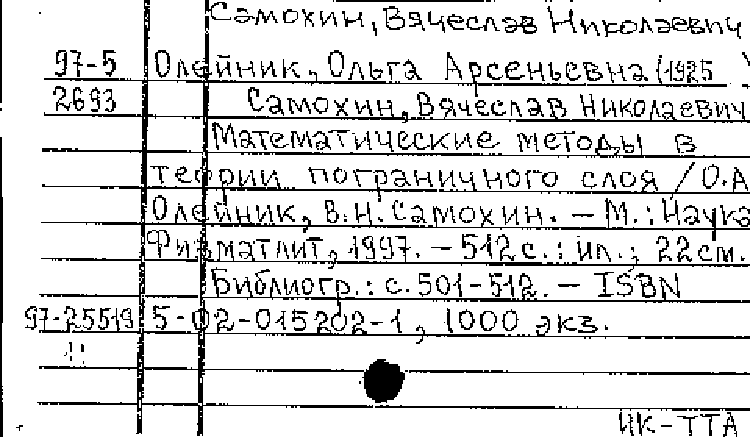 Самохин, Вячеслав Николаевич
97-5 Олейник, Ольга Арсеньевна (1925
2693 Самохин, Вячеслав Николаевич
Математические методы в
теории пограничного слоя / О.А
Олейник, В.Н. Самохин. — М.: Наука
Физматлит, 1997. — 512 с.: ил.; 22 см.
Библиогр.: с. 501-512. — ISBN
97-25519 5-02-015202-1, 1000 экз.
ИК-ТТА